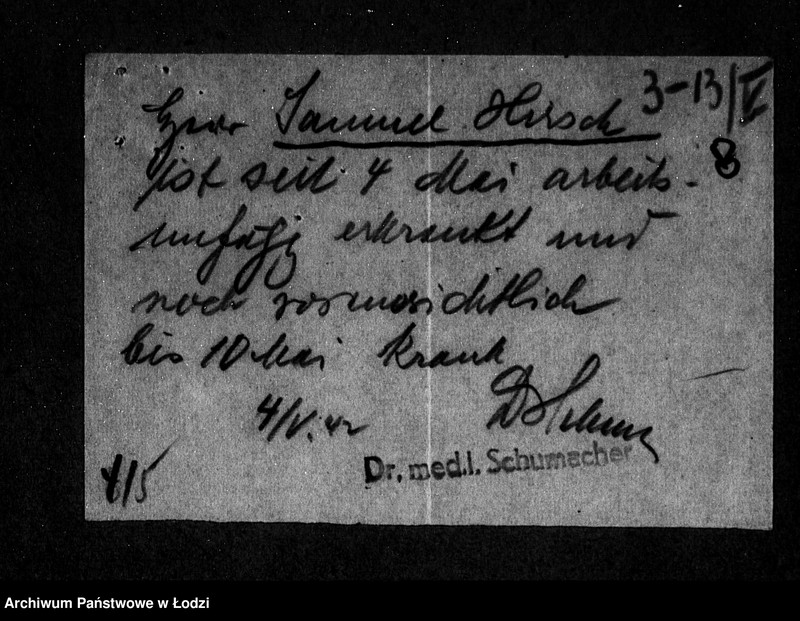 3-13/V
Herr Samuel Hirsch
8
ist seit 4 Mai arbeits-
unfähig erkrankt und
noch voraussichtlich
bis 10 Mai krank
4/V. 42
Dr. med. I. Schumacher
Archiwum Państwowe w Łodzi